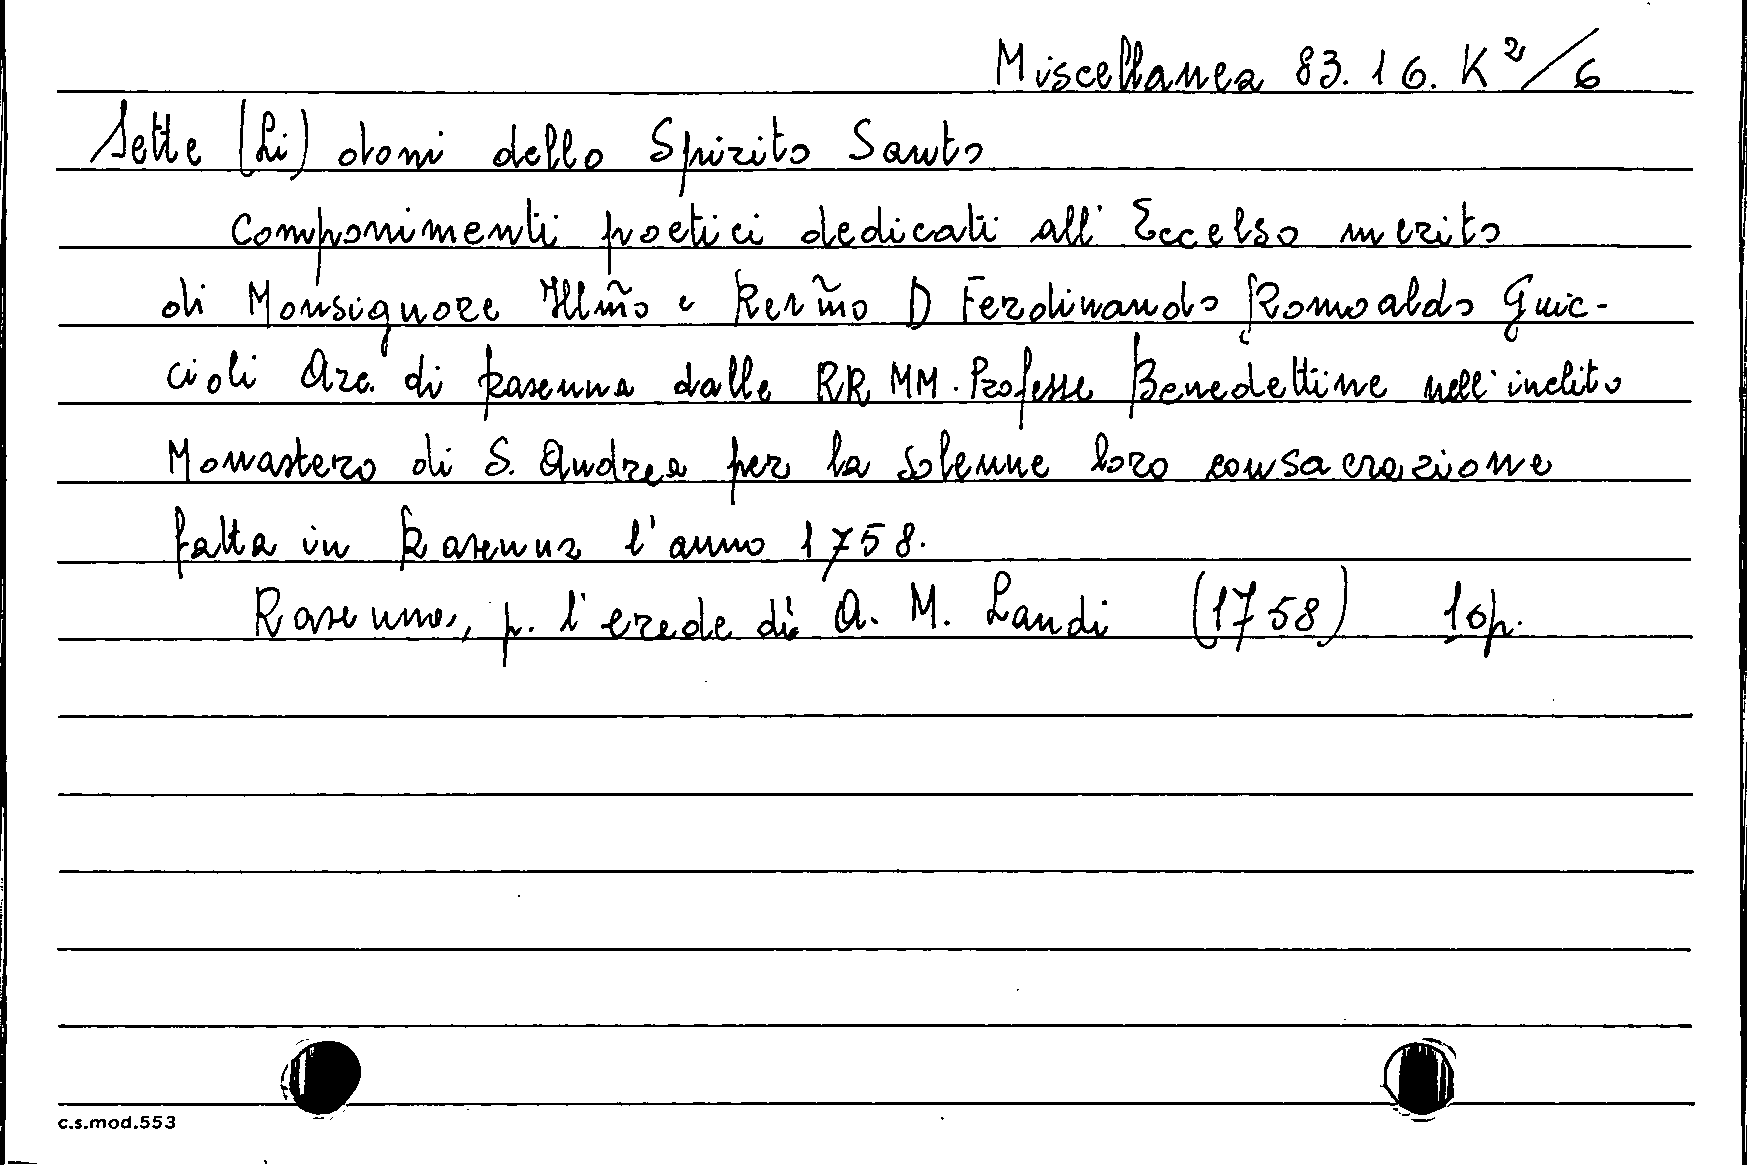 Miscellanea 83.16.K²/6
Sette (Li) doni dello Spirito Santo
Componimenti poetici dedicati all'Eccelso merito
di Monsignore Illm̃o e Revm̃o D Ferdinando Romoaldo Guic-
cioli Arc. di Ravenna dalle RR MM. Professe Benedettine nell'inclito
Monastero di S. Andrea per la solenne loro consacrazione
fatta in Ravenna l'anno 1758.
Ravenna, p. l'erede di A. M. Landi (1758) 10p.
c.s.mod.553